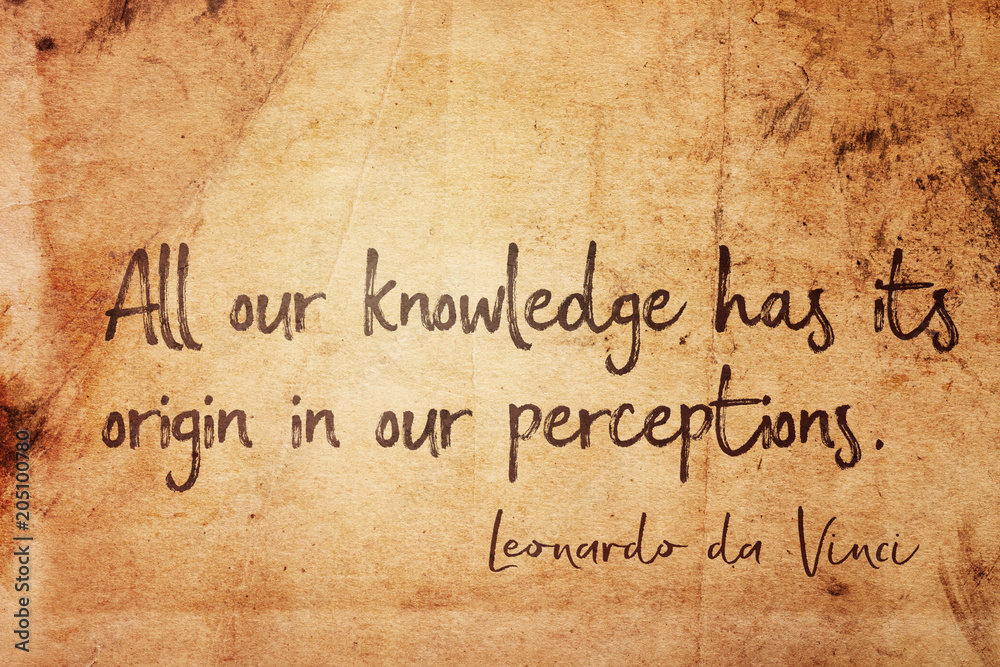 All our knowledge has its
origin in our perceptions.
Leonardo da Vinci
Adobe Stock | #205100780